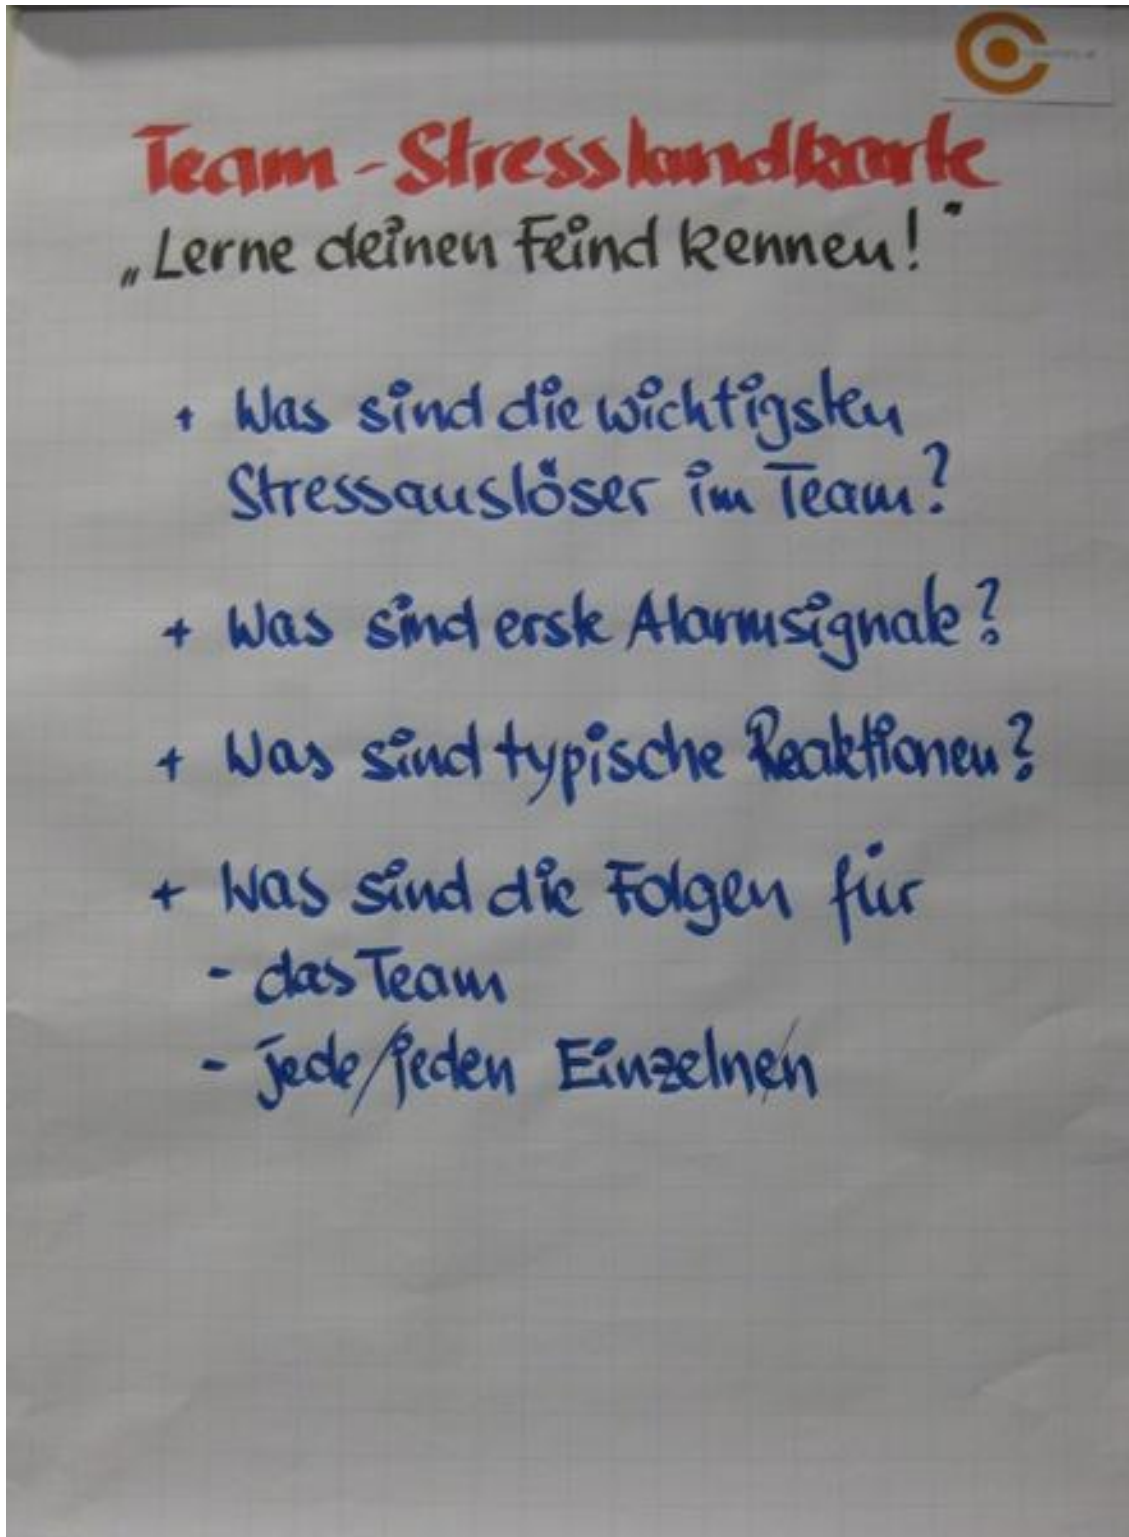 Team - Stresslandkarte
„Lerne deinen Feind kennen!"
+ Was sind die wichtigsten
Stressauslöser im Team?
+ Was sind erste Alarmsignale?
+ Was sind typische Reaktionen?
+ Was sind die Folgen für
- das Team
- jede/jeden Einzelne/n